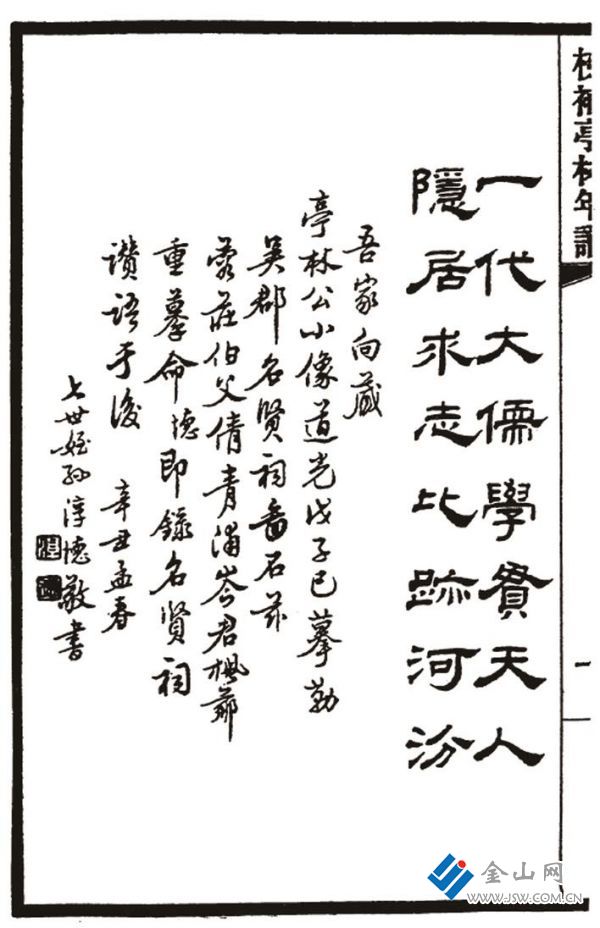 校補亭林年譜
一
一代大儒學貫天人
隱居求志比跡河汾
吾家向藏
亭林公小像道光戊子已摹勒
吳郡名賢祠石茲
蓉莊伯父倩青浦岑君楓薌
重摹命德即錄名賢祠
讚語于後 辛丑孟春
七世姪孫淳德敬書
金山网
WWW.JSW.COM.CN